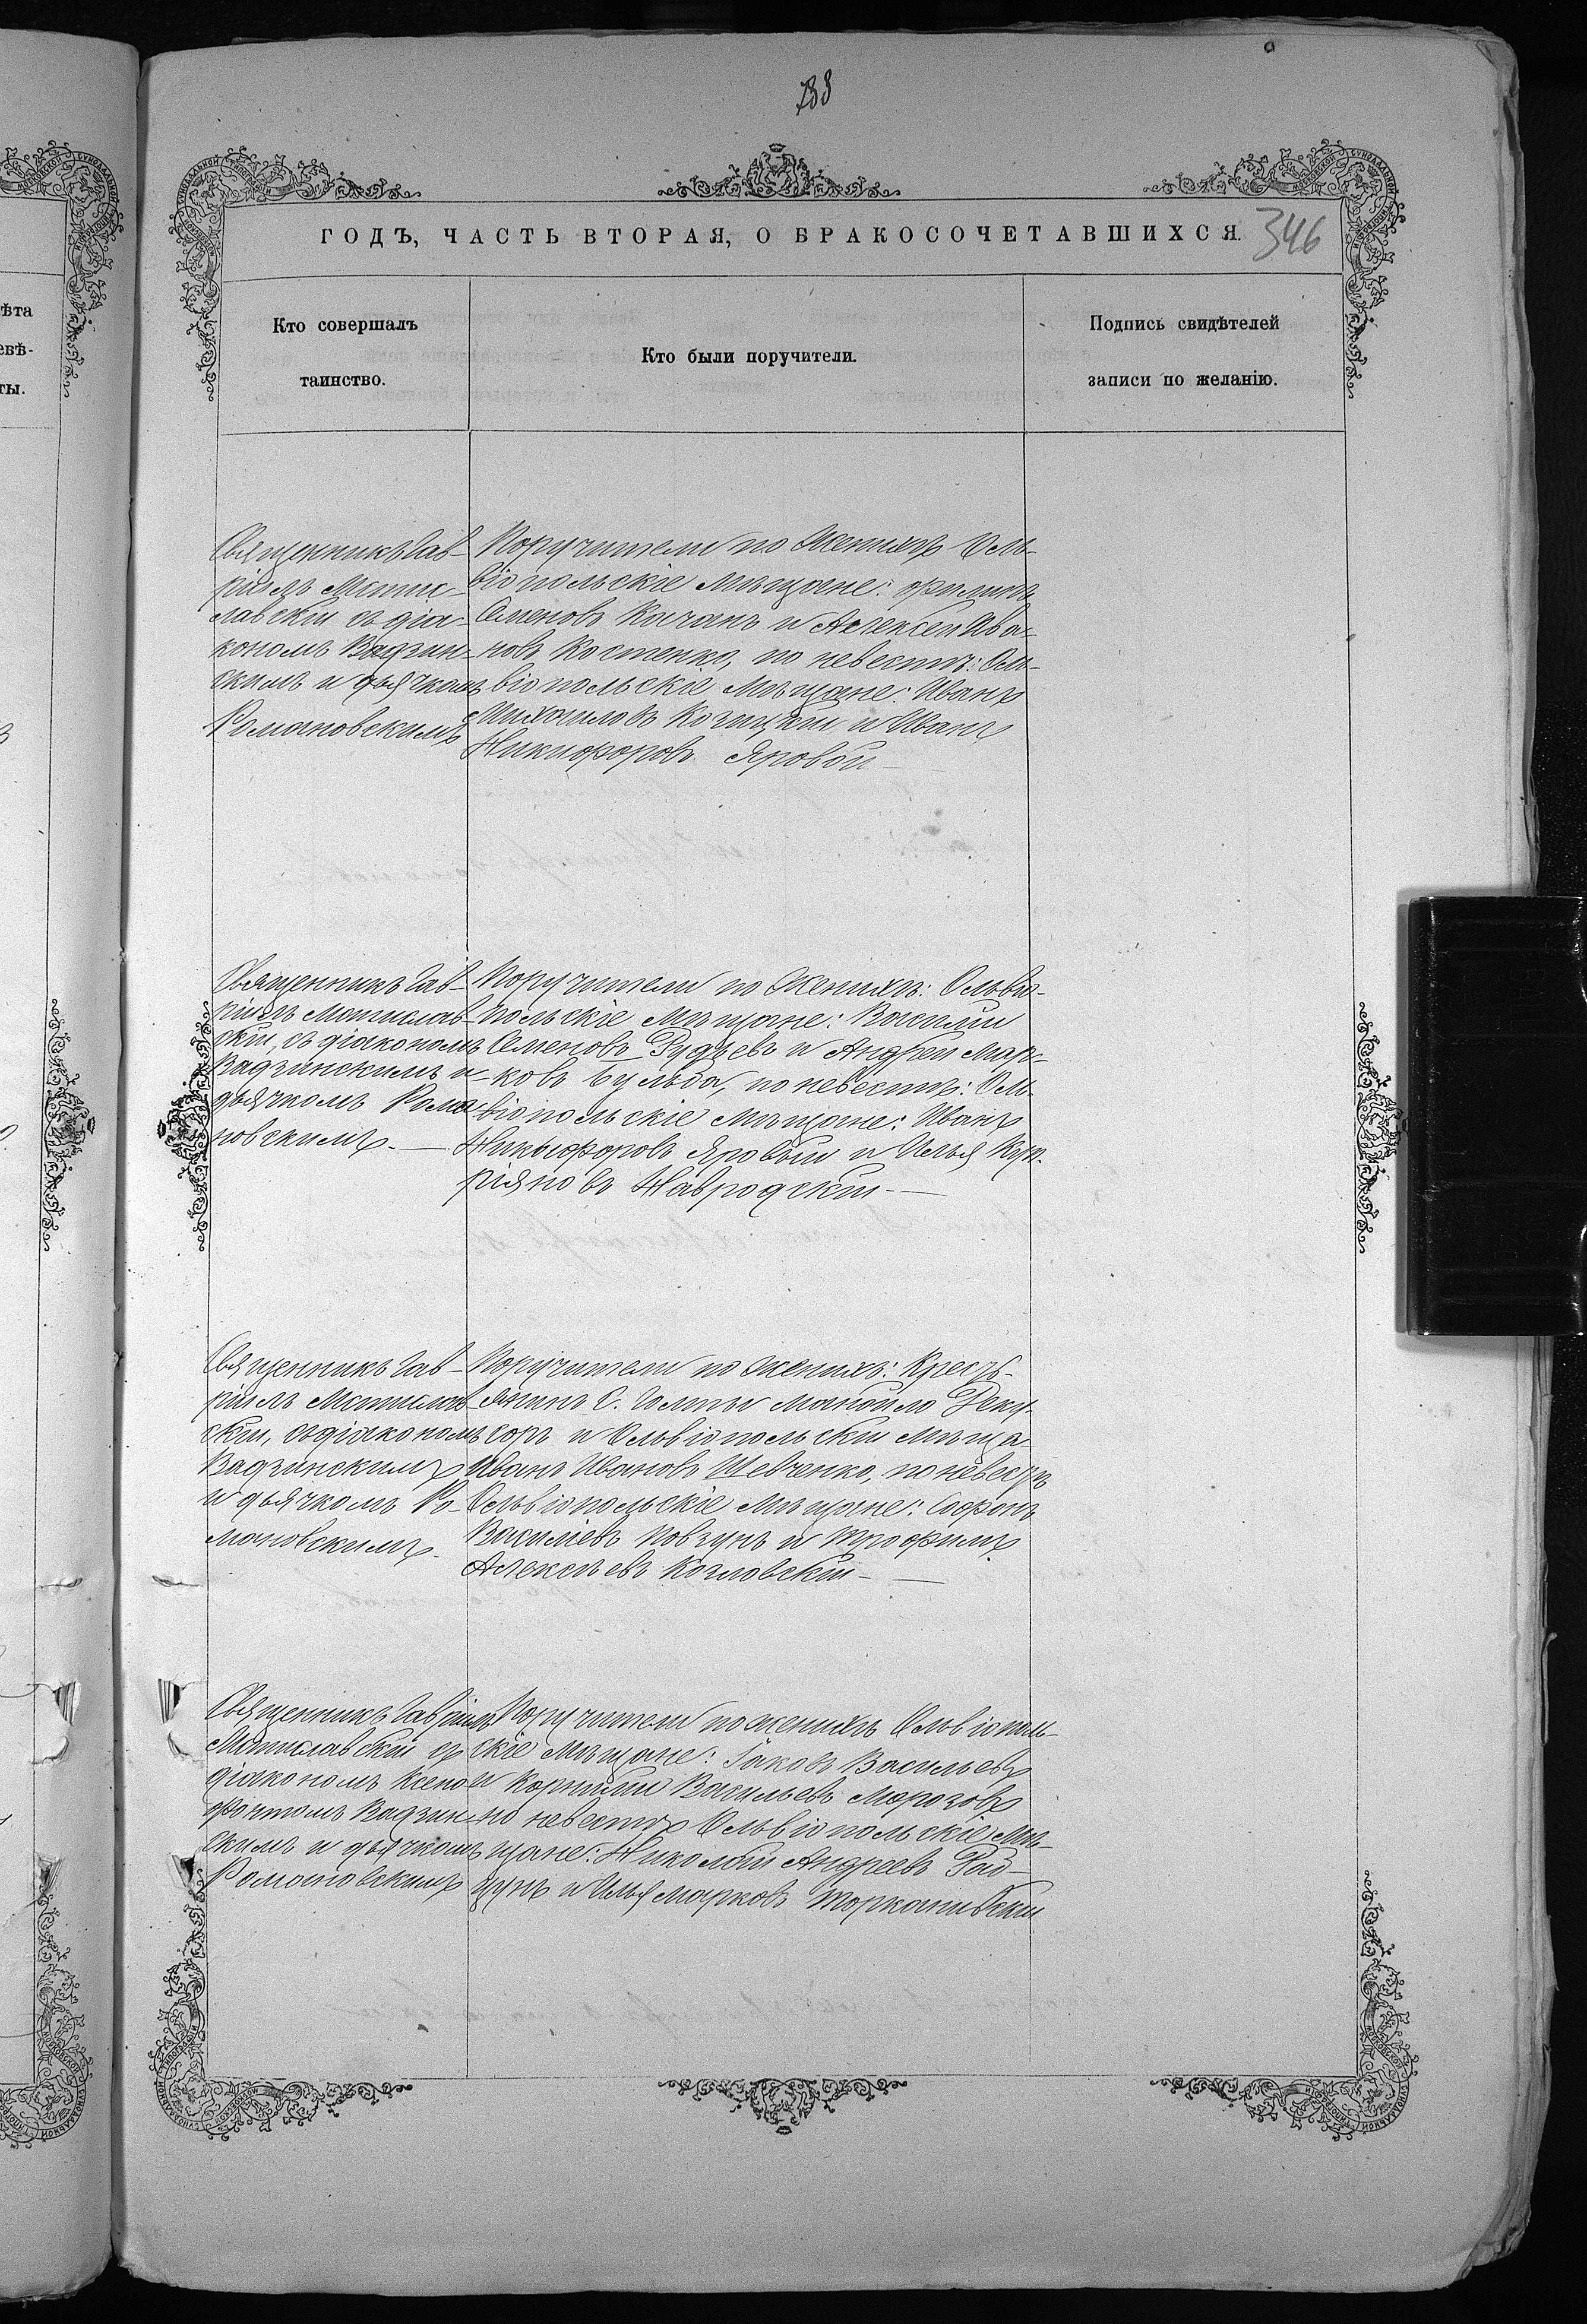 ГОДЪ, ЧАСТЬ ВТОРАЯ, О БРАКОСОЧЕТАВШИХСЯ. 346
Кто совершалъ
таинство.
Кто были поручители.
Подпись свидѣтелей
записи по желанію.
Священникъ Гав-
ріилъ Мстис-
лавскій съ діа-
кономъ Вадзин-
скимъ и дьячкомъ
Романовскимъ
Поручители по Женихѣ Оль-
віопольскіе мѣщане: Филипъ
Семеновъ Качанъ и Алексей Ива-
новъ Костенко, по невестѣ: Оль-
віопольскіе Мѣщане: Иванъ
Михаиловъ Козицкій и Иванъ
Никифоровъ Яровой
Священникъ Гав-
ріилъ Мстислав-
скій, съ діакономъ
Вадзинскимъ и
дьячкомъ Рома-
новскимъ.
Поручители по Женихѣ: Ольвіо-
польскіе Мѣщане: Василій
Семеновъ Рудзевъ и Андрей Мар-
ковъ Бульба, по невестѣ: Оль-
віопольскіе мѣщане: Иванъ
Никифоровъ Яровый и Илья Куп-
ріяновъ Навродскій.
Священникъ Гав-
ріилъ Мстислав-
скій, съ діакономъ
Вадзинскимъ
и дьячкомъ Ро-
мановскимъ.
Поручители по Женихѣ: Кресть-
янинъ С. Голты Манойло
и Ольвіопольскій мѣща.
Иванъ Ивановъ Шевченко, по невестѣ
Ольвіопольскіе мѣщане: Софонъ
Василіевъ Повзунъ и Трофимъ
Алексѣевъ Козловскій
Священникъ Гавріилъ
Мстиславскій съ
діакономъ Ксено-
фонтомъ Вадзин-
скимъ и дьячкомъ
Романовскимъ
Поручители по женихѣ Ольвіополь-
скіе Мѣщане: Іаковъ Васильевъ
и Корнилій Васильевъ Морозовъ
по невестѣ Ольвіопольскіе Мѣ-
щане: Николай Андреевъ Рай-
цунъ и Илья Марковъ Торкановскій